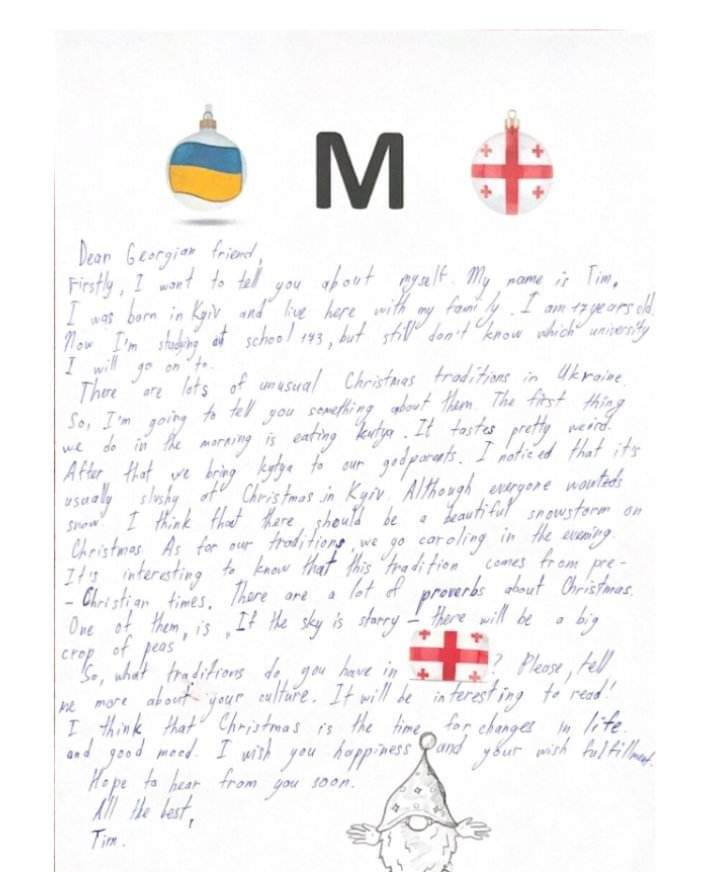 M
Dear Georgian friend,
Firstly, I want to tell you about myself. My name is Tim.
I was born in Kyiv and live here with my family. I am 17 years old.
Now I'm studying at school 173, but still don't know which university
I will go on to.
There are lots of unusual Christmas traditions in Ukraine.
So, I'm going to tell you something about them. The first thing
we do in the morning is eating kutya. It tastes pretty weird.
After that we bring kytya to our godparents. I noticed that it's
usually slushy at Christmas in Kyiv. Although everyone wants
snow I think that there should be a beautiful snowstorm on
Christmas. As for our traditions, we go caroling in the evening.
It's interesting to know that this tradition comes from pre-
-Christian times. There are a lot of proverbs about Christmas.
One of them, is „If the sky is starry – there will be a big
crop of peas
So, what traditions do you have in ? Please, tell
me more about your culture. It will be interesting to read!
I think that Christmas is the time for changes in life.
and good mood. I wish you happiness and your wish fulfillment.
Hope to hear from you soon.
All the best,
Tim.